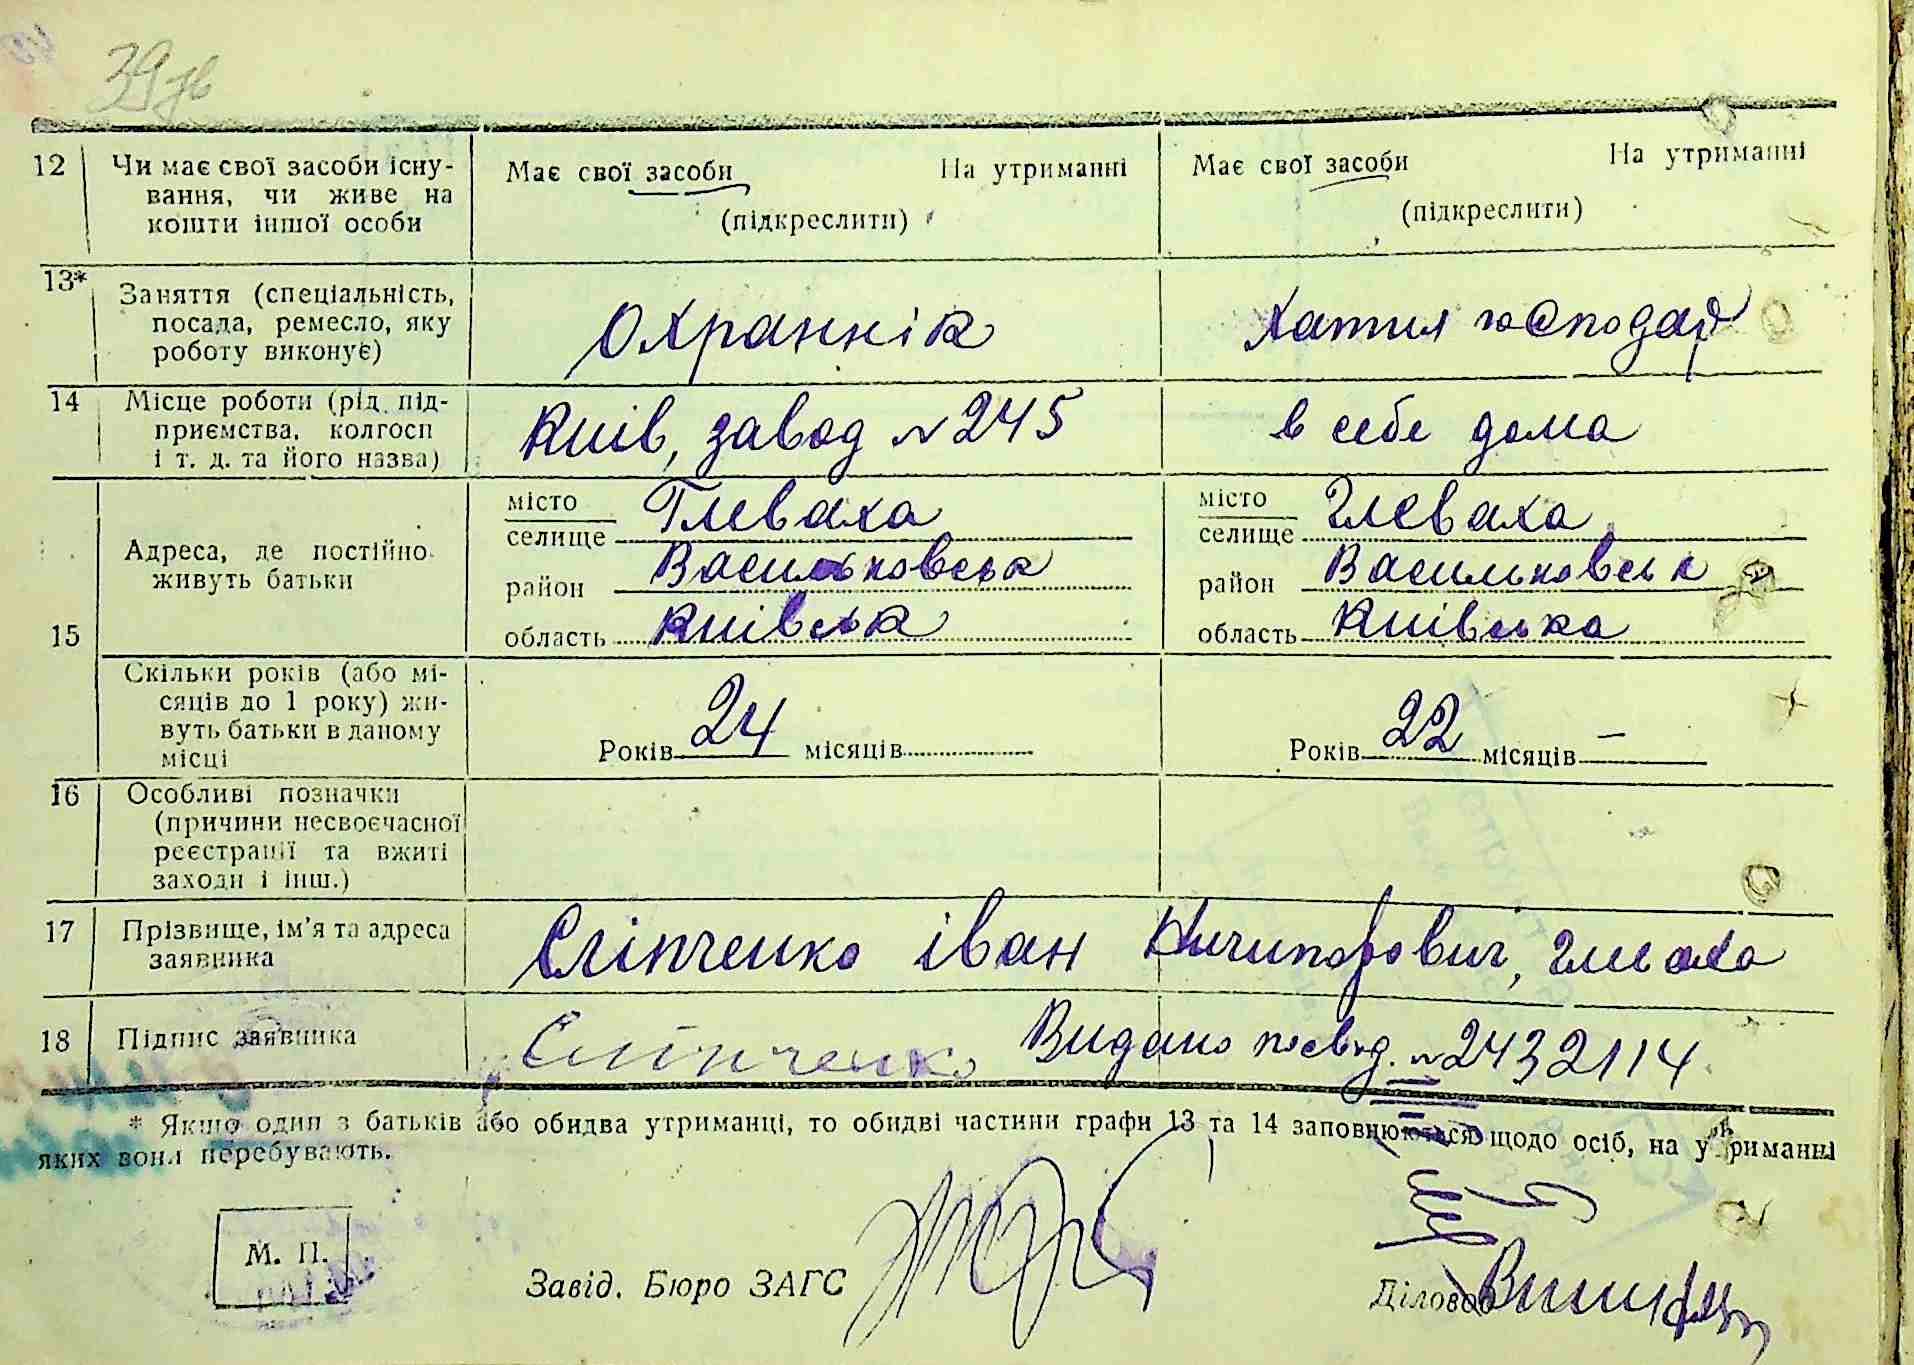 39зв
12 Чи має свої засоби існу- Має свої засоби На утриманні Має свої засоби На утриманні
вання, чи живе на (підкреслити) (підкреслити)
кошти іншої особи
13* Заняття (спеціальність, Охраннік Хатня господар
посада, ремесло, яку
роботу виконує)
14 Місце роботи (рід під- Київ, завод №245 в себе дома
приємства, колгосп
і т. д. та його назва)
місто Глеваха місто Глеваха
селище селище
Адреса, де постійно район Васильковськ район Васильковськ
живуть батьки
15 область Київськ область Київська
Скільки років (або мі-
сяців до 1 року) жи-
вуть батьки в даному Років 24 місяців Років 22 місяців —
місці
16 Особливі позначки
(причини несвоєчасної
реєстрації та вжиті
заходи і інш.)
17 Прізвище, ім'я та адреса Сліпченко Іван Ничипорович,
заявника
18 Підпис заявника Сліпченко Видано посвід. №2432114
* Якщо один з батьків або обидва утриманці, то обидві частини графи 13 та 14 заповнюються щодо осіб, на утриманні
яких вони перебувають.
М. П.
Завід. Бюро ЗАГС
Діловод